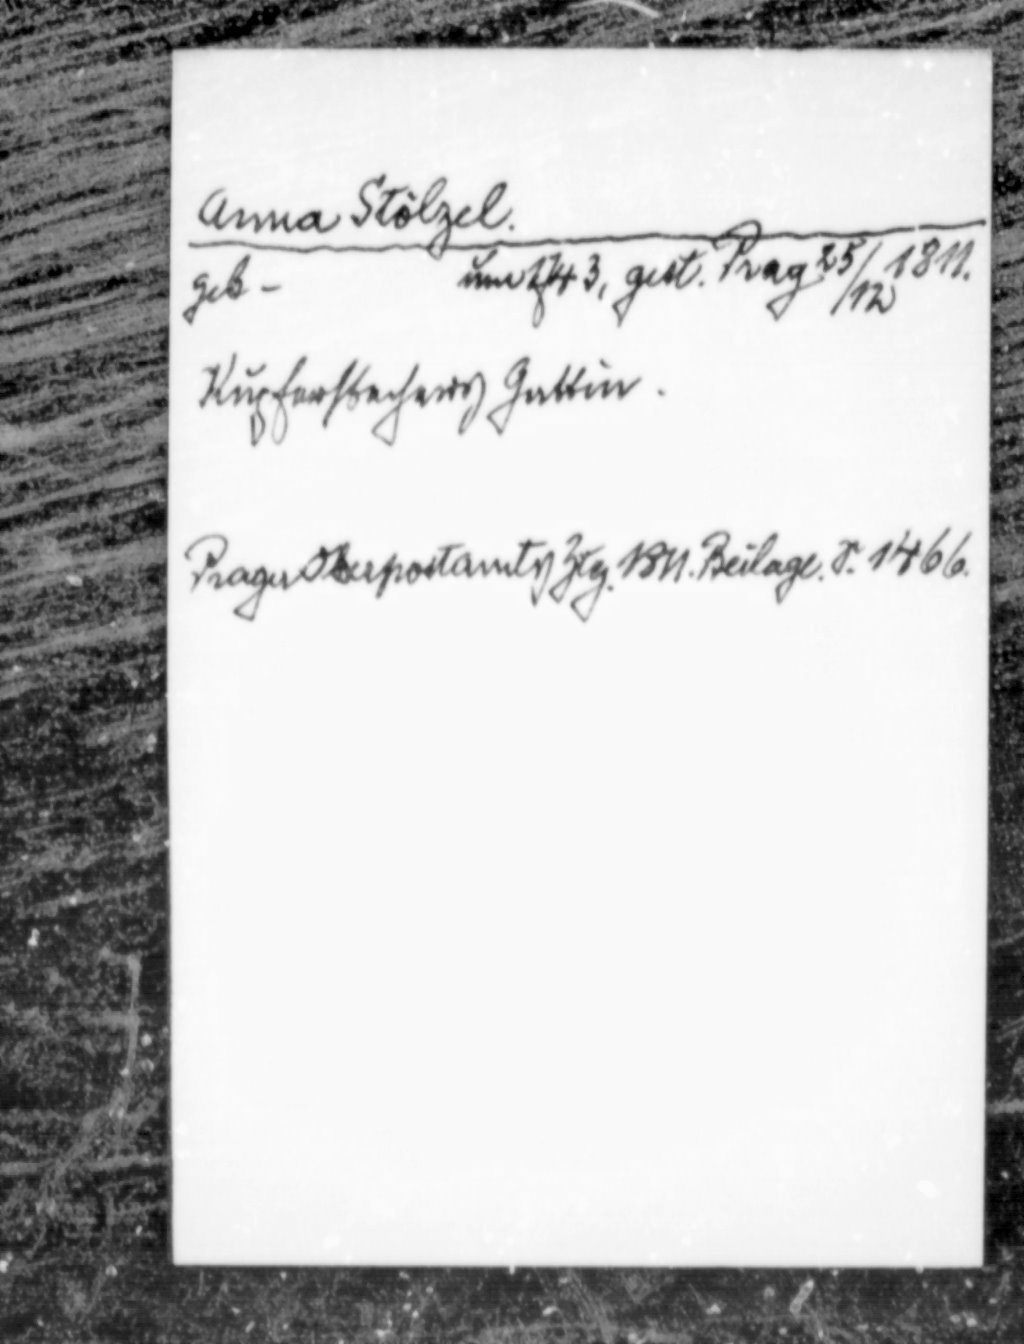 Anna Stölzel.
geb – um 1743, gest. Prag 25/12 1811.
Kupferstechers Gattin.
Prager Oberpostamts Ztg. 1811. Beilage. S. 1466.